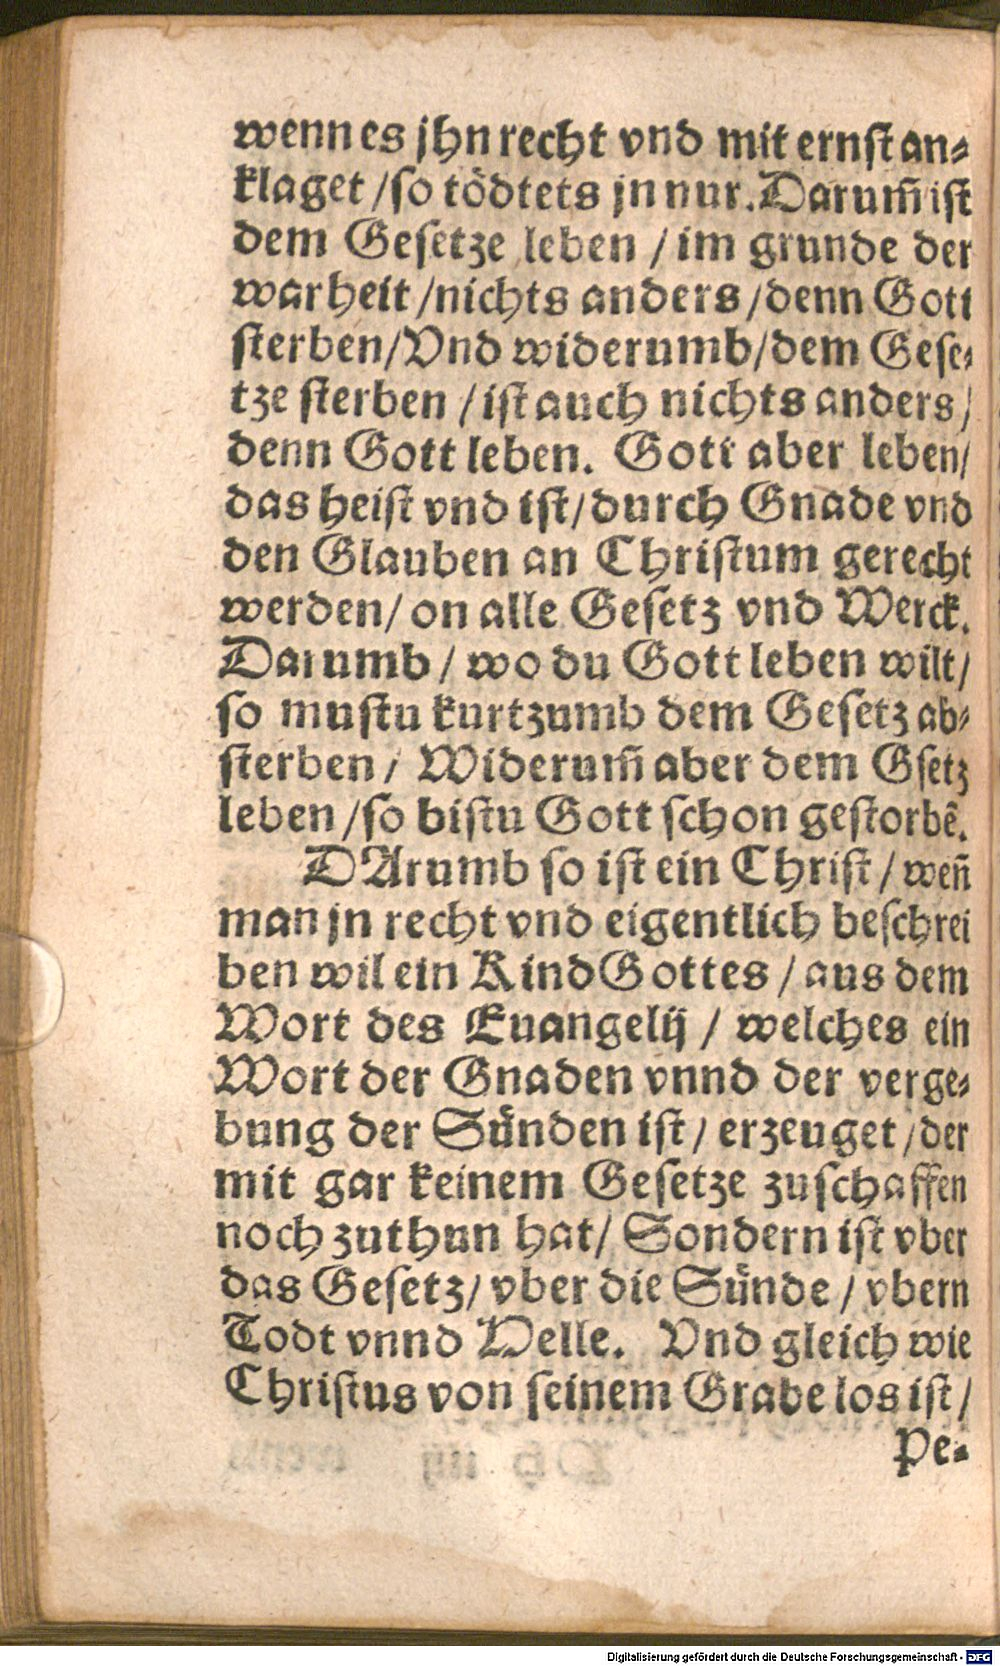 wenn es jhn recht vnd mit ernst an-
klaget / so tödtets jn nur. Darum̃ ist
dem Gesetze leben / im grunde der
warheit / nichts anders / denn Gott
sterben / Vnd widerumb / dem Gese-
tze sterben / ist auch nichts anders /
denn Gott leben. Gott aber leben /
das heist vnd ist / durch Gnade vnd
den Glauben an Christum gerecht
werden / on alle Gesetz vnd Werck.
Darumb / wo du Gott leben wilt /
so mustu kurtzumb dem Gesetz ab-
sterben / Widerum̃ aber dem Gsetz
leben / so bistu Gott schon gestorbẽ.
DArumb so ist ein Christ / weñ
man jn recht vnd eigentlich beschrei
ben wil ein Kind Gottes / aus dem
Wort des Euangelij / welches ein
Wort der Gnaden vnnd der verge-
bung der Sünden ist / erzeuget / der
mit gar keinem Gesetze zuschaffen
noch zuthun hat / Sondern ist vber
das Gesetz / vber die Sünde / vbern
Todt vnnd Helle. Vnd gleich wie
Christus von seinem Grabe los ist /
Pe-
Digitalisierung gefördert durch die Deutsche Forschungsgemeinschaft - DFG